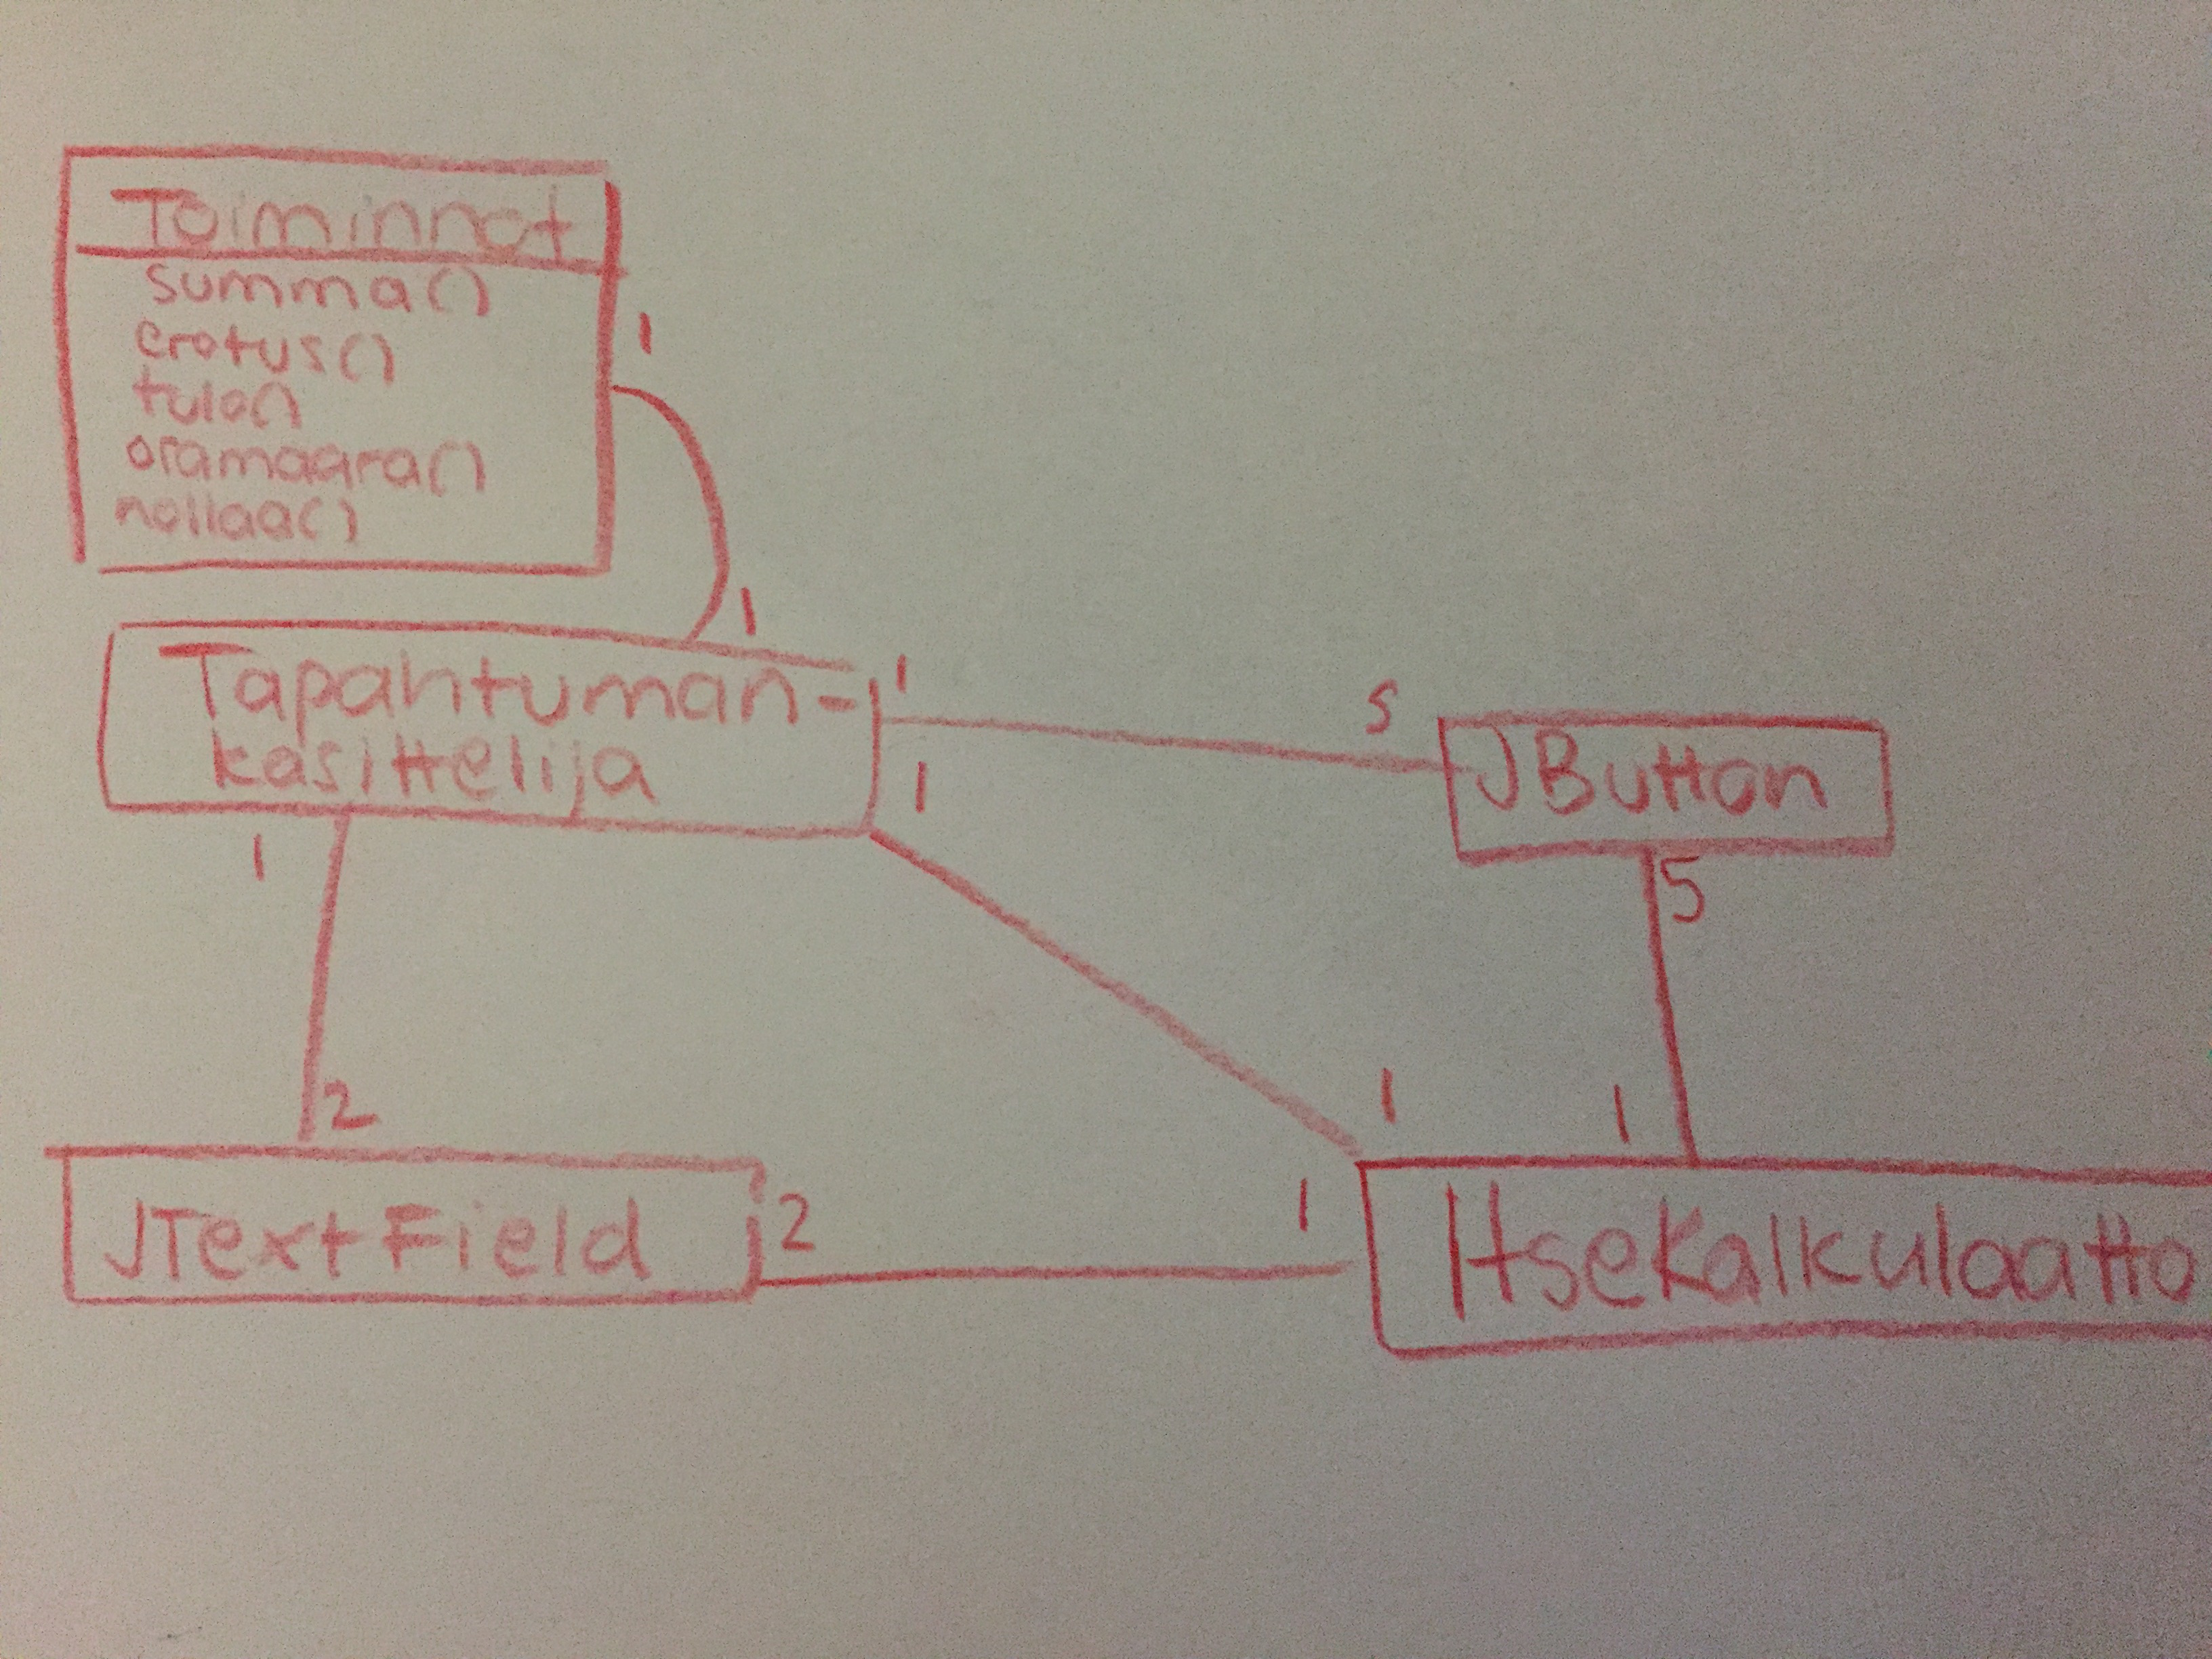 Toiminnot
summa()
erotus()
tulo()
osamaara()
nollaa()
1
1
Tapahtuman-
kasittelija
1
5
JButton
1
5
1
2
1
1
JTextField
2
1
Itsekalkulaatto